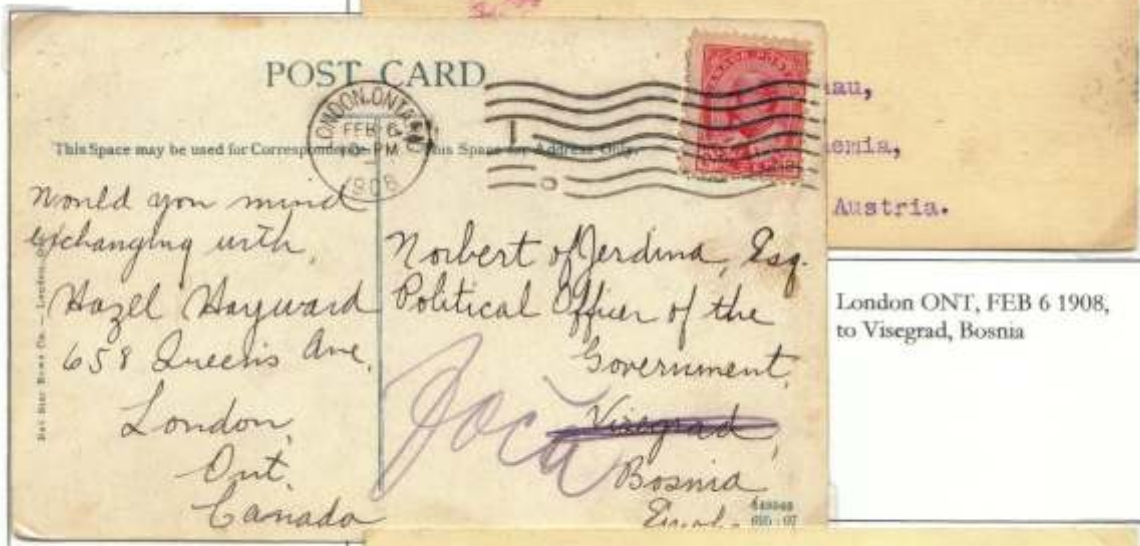 POST CARD
LONDON, ONTARIO
FEB 6
PM
1908
This Space may be used for Correspondence
This Space for Address Only.
Would you mind
exchanging with,
Hazel Hayward
658 Queens Ave,
London,
Ont.
Canada
Norbert of Jerdina, Esq.
Political Officer of the
Government,
Visegrad,
Bosnia
Foča
nau,
emia,
Austria.
London ONT, FEB 6 1908,
to Visegrad, Bosnia